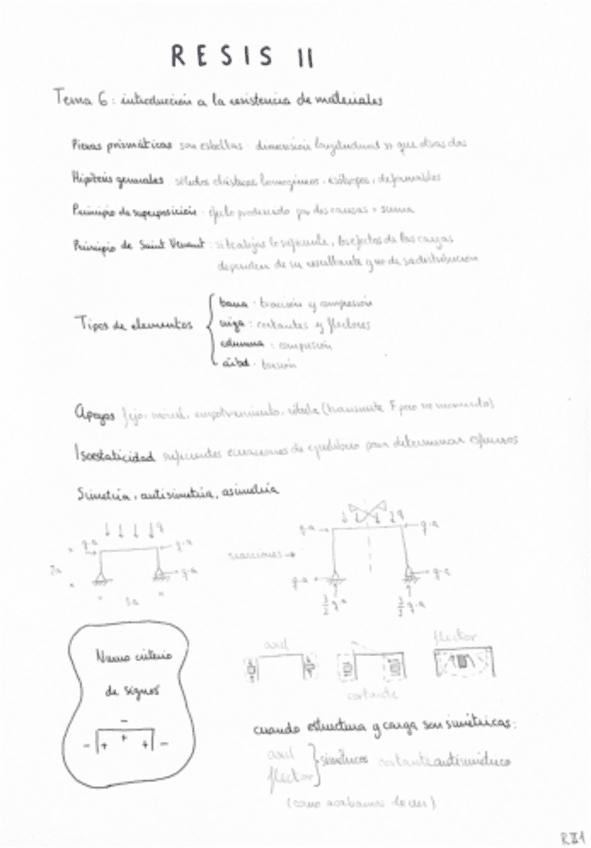 RESIS II
Tema 6: introducción a la resistencia de materiales
Piezas prismáticas son esbeltas · dimensión longitudinal >> que otras dos
Hipótesis generales: sólidos elásticos homogéneos, isótropos, deformables
Principio de superposición: efecto producido por dos causas = suma
Principio de Saint Venant: si trabajas lo suficiente, los efectos de las cargas
dependen de su resultante y no de su distribución
Tipos de elementos
barra · tracción y compresión
viga: cortantes y flectores
columna: compresión
árbol · torsión
Apoyos fijo, móvil, empotramiento, rótula (transmite F pero no momento)
Isostaticidad suficientes ecuaciones de equilibrio para determinar esfuerzos
Simetría, antisimetría, asimetría
q·a q q·a
2a q·a
reacciones →
q·a q q·a
q·a q·a
3/2 q·a 3/2 q·a
axil flector
cortante
Nuevo criterio
de signos
−
− + + + −
cuando estructura y carga son simétricas:
axil
flector
simétricos cortante antisimétrico
(como acabamos de ver)
RII1